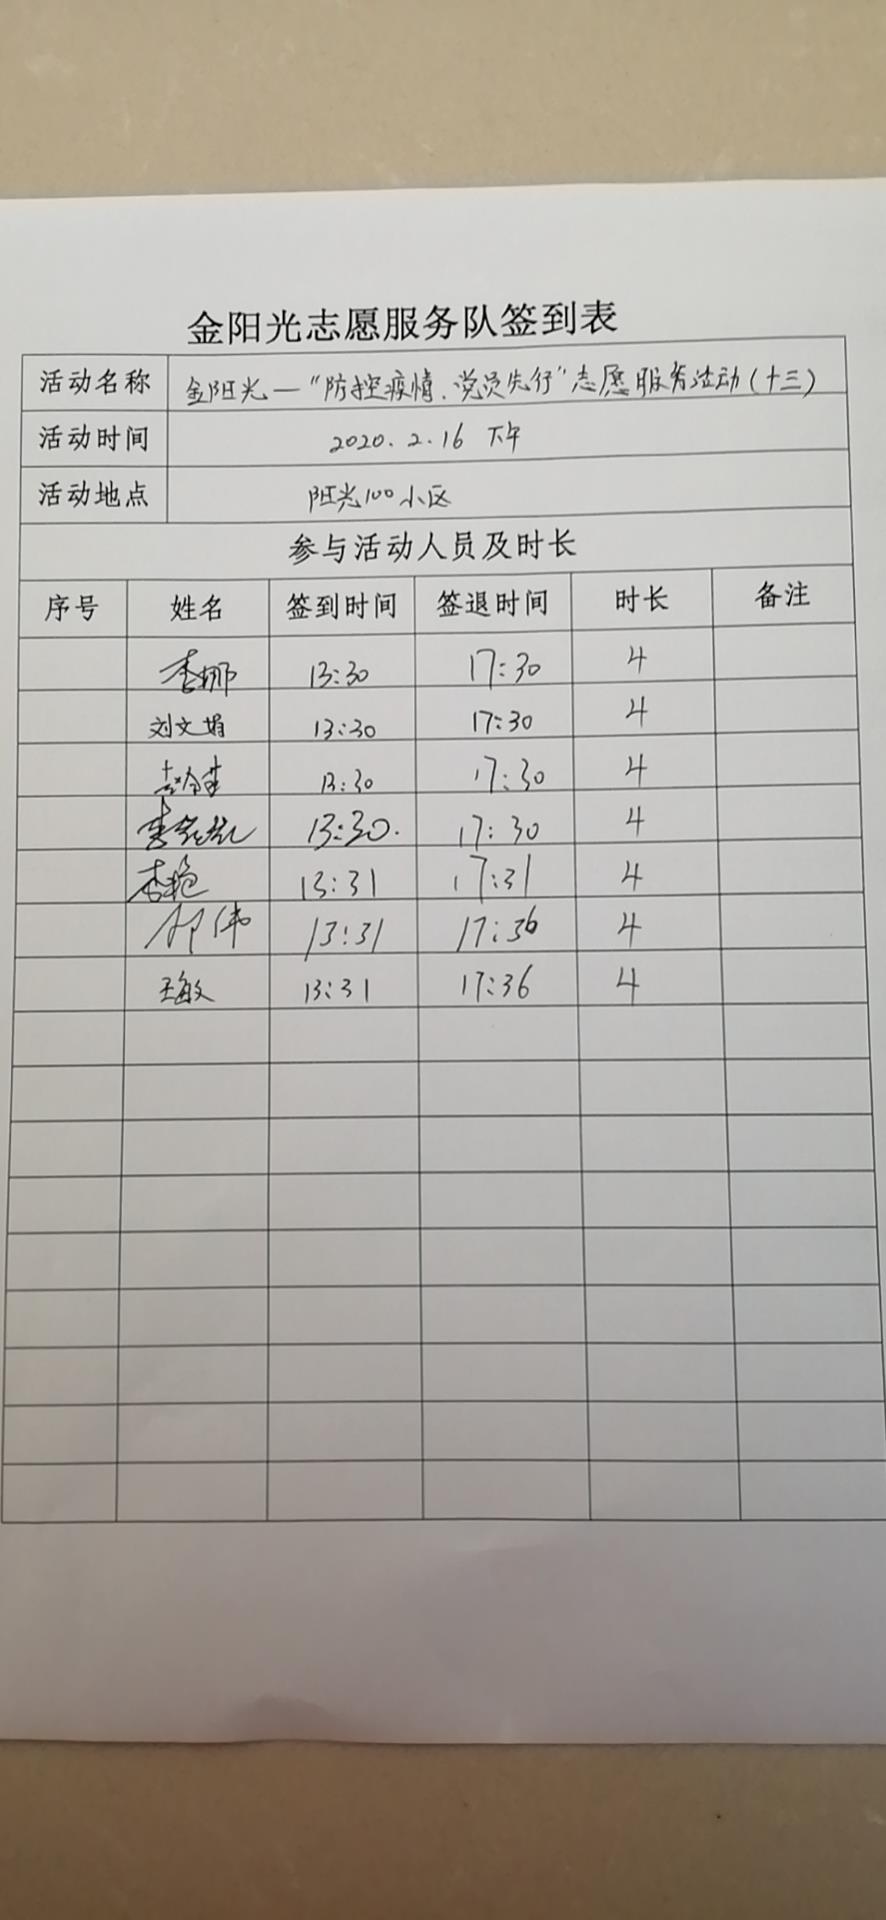 金阳光志愿服务队签到表
活动名称 金阳光—“防控疫情、党员先行”志愿服务活动(十三)
活动时间 2020.2.16 下午
活动地点 阳光100小区
参与活动人员及时长
序号 姓名 签到时间 签退时间 时长 备注
李娜 13:30 17:30 4
刘文娟 13:30 17:30 4
13:30 17:30 4
13:30. 17:30 4
李艳 13:31 17:31 4
伟 13:31 17:36 4
王敏 13:31 17:36 4